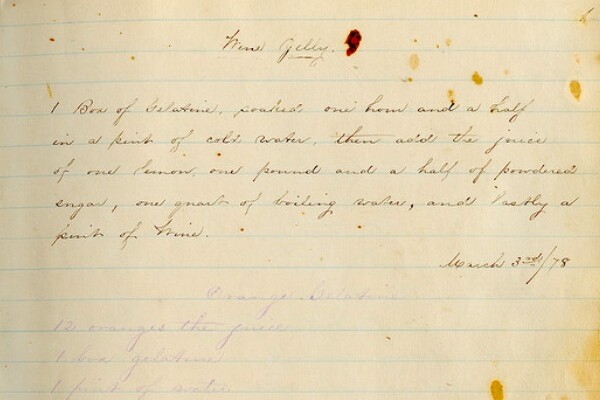 Wine Gelly.
1 Box of Gelatine, soaked one hour and a half
in a pint of cold water, then add the juice
of one lemon, one pound and a half of powdered
sugar, one quart of boiling water, and lastly a
pint of Wine.
March 3rd/78
Orange Gelatine
12 oranges the juice
1 box gelatine
1 pint of water